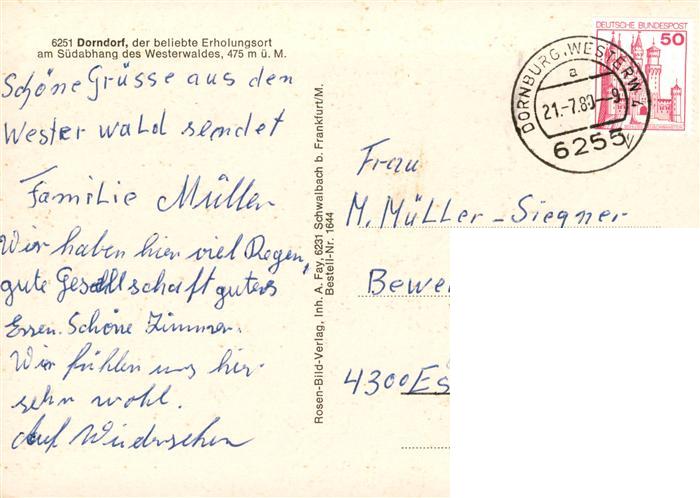 6251 Dorndorf, der beliebte Erholungsort
am Südabhang des Westerwaldes, 475 m ü. M.
Schöne Grüsse aus den
Westerwald sendet
Familie Müller
Wir haben hier viel Regen,
gute Gesellschaft gutes
Essen. Schöne Zimmer.
Wir fühlen uns hier
sehr wohl.
Auf Wiedersehen
Rosen-Bild-Verlag, Inh. A. Fay, 6231 Schwalbach b. Frankfurt/M.
Bestell-Nr. 1644
DEUTSCHE BUNDESPOST
50
DORNBURG, WESTERW 1
a
21.-7.80-9
6255
Frau
M. Müller-Siegner
Bewe
4300 Es